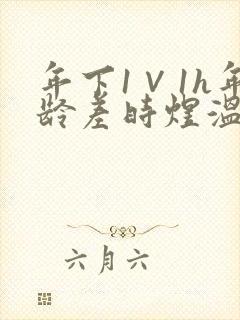 年下1V1h年
龄差时煜温
六月六